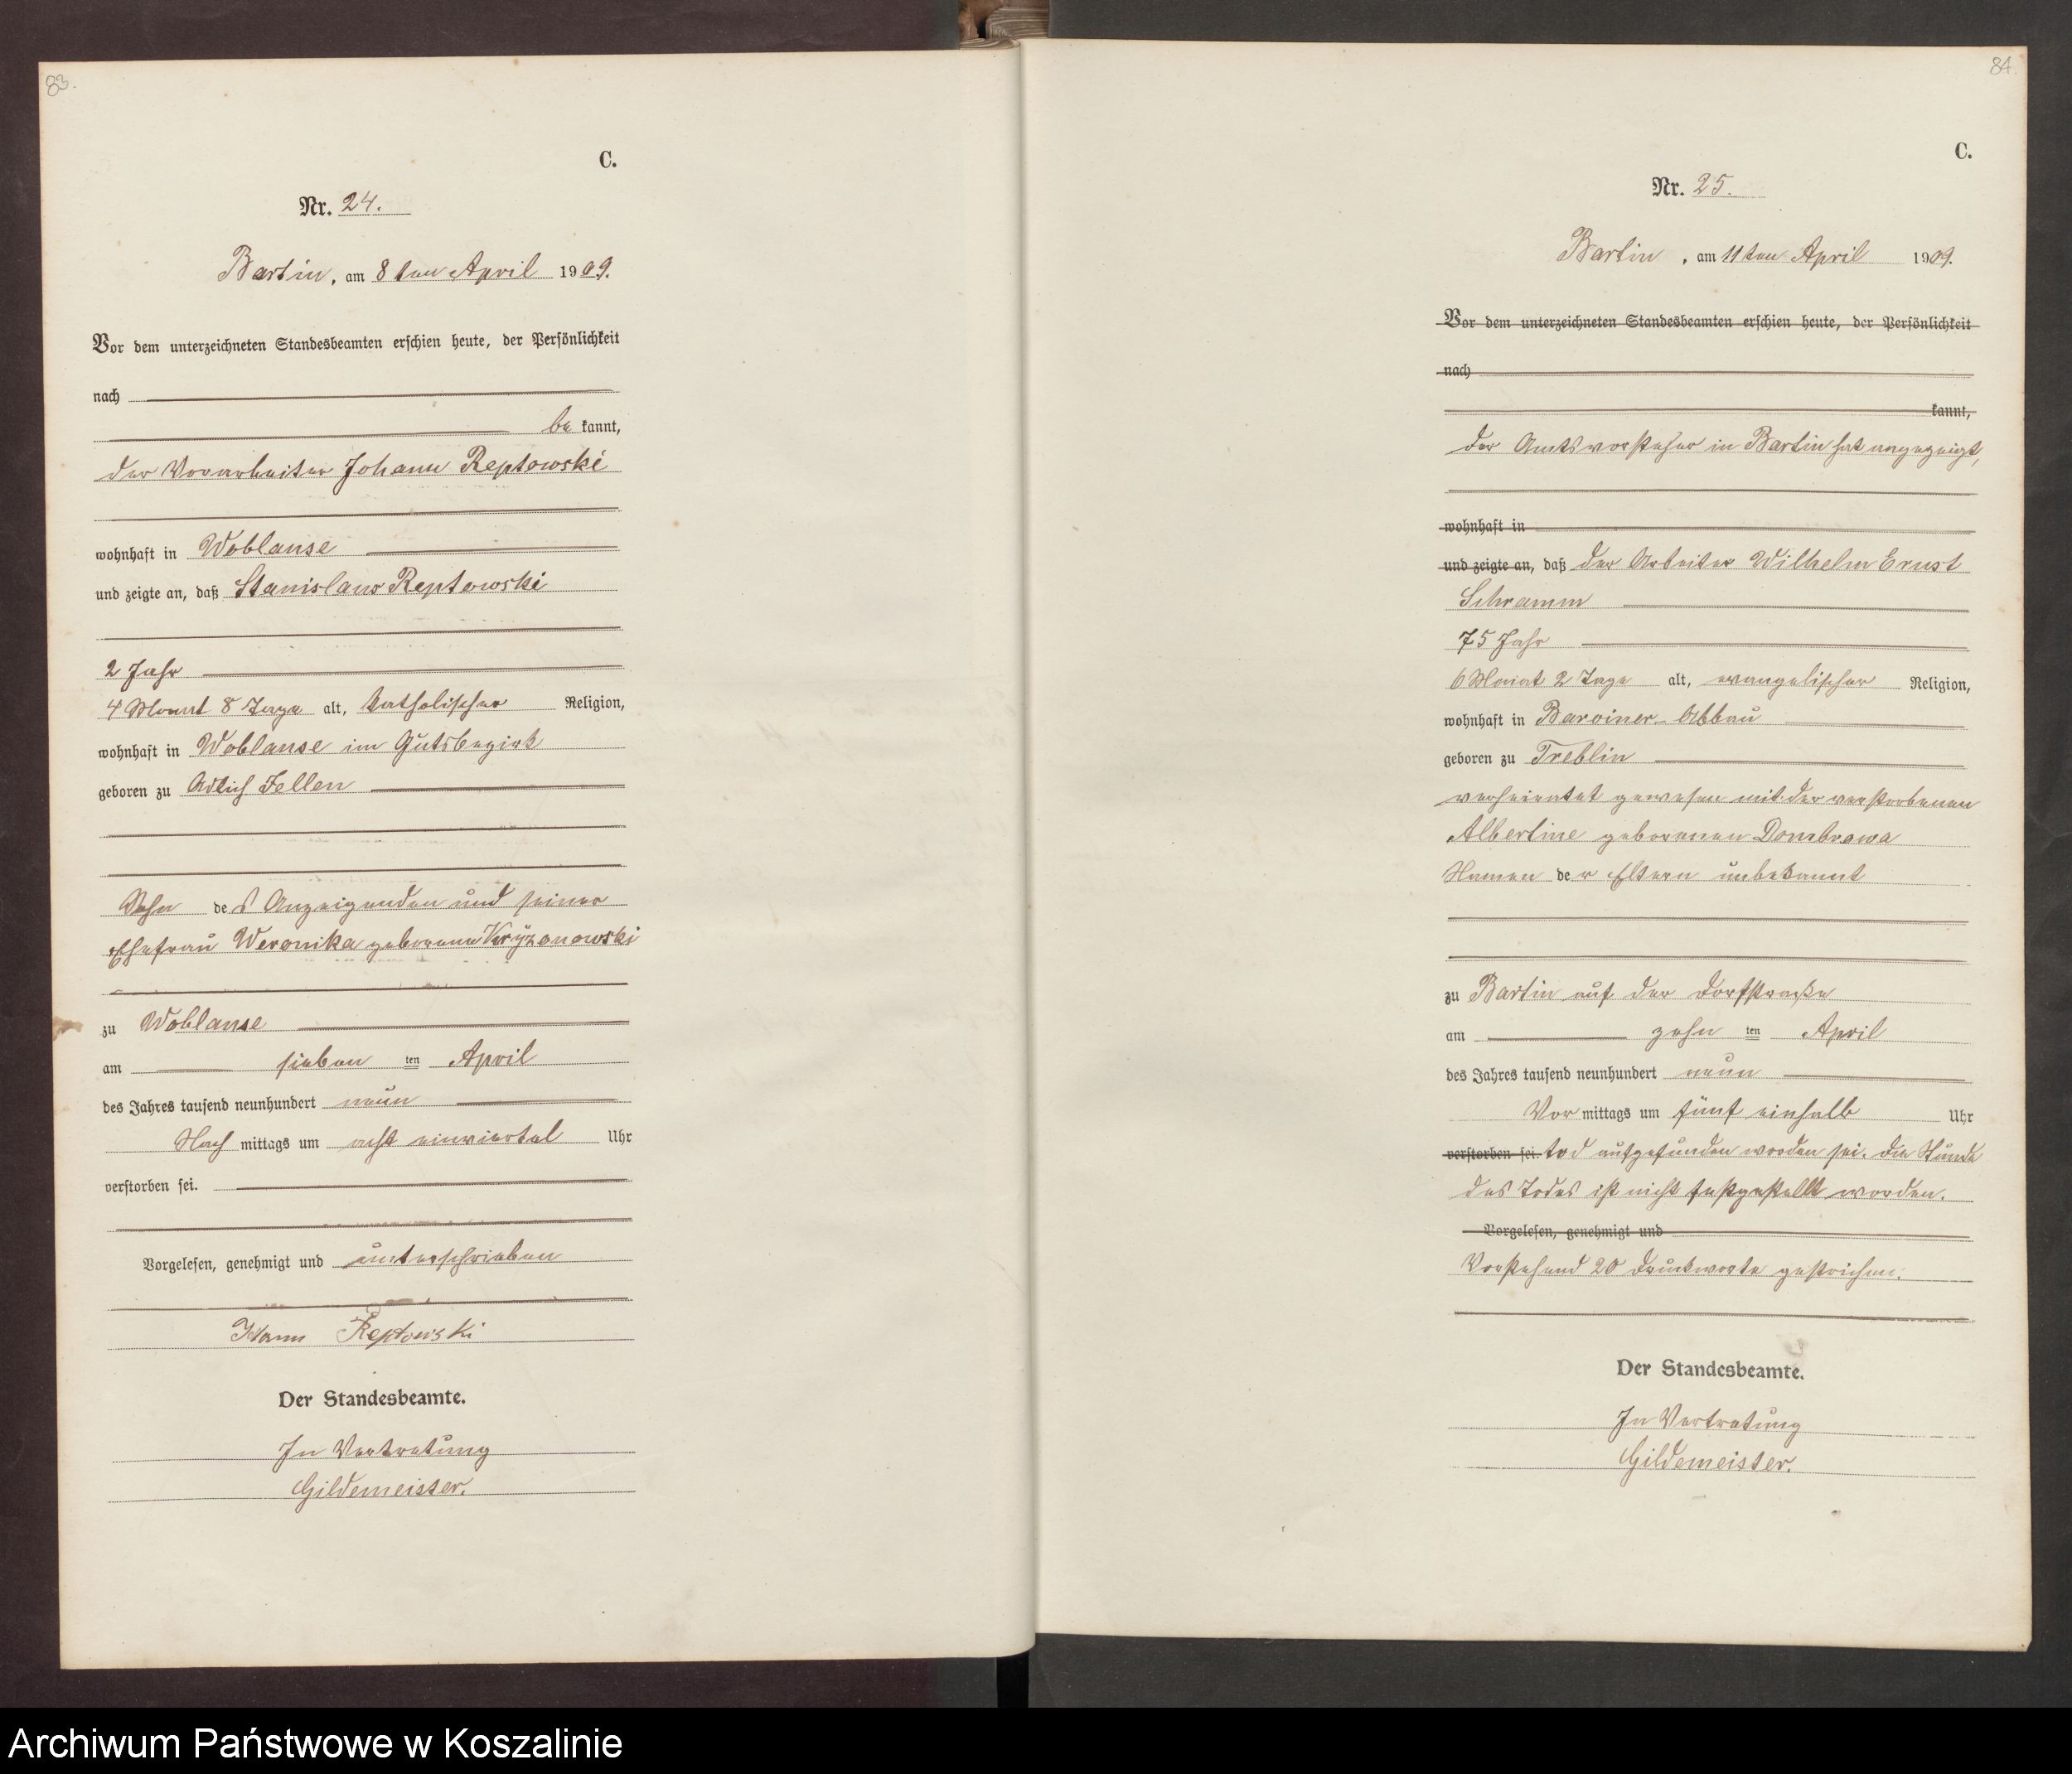 83.
C.
Nr. 24.
Bartin, am 8ten April 1909.
Vor dem unterzeichneten Standesbeamten erschien heute, der Persönlichkeit
nach
be kannt,
der Vorarbeiter Johann Reptowski
wohnhaft in Woblanse
und zeigte an, daß Stanislaus Reptowski
2 Jahr
4 Monat 8 Tage alt, katholischer Religion,
wohnhaft in Woblanse im Gutsbezirk
geboren zu Adlich Zellen
Sohn des Anzeigenden und seiner
Ehefrau Weronika geborene Kryzonowski
zu Woblanse
am sieben ten April
des Jahres tausend neunhundert neun
Nach mittags um acht einviertel Uhr
verstorben sei.
Vorgelesen, genehmigt und unterschrieben
Johann Reptowski
Der Standesbeamte.
In Vertretung
Gildemeister.
84.
C.
Nr. 25.
Bartin, am 11ten April 1909.
Vor dem unterzeichneten Standesbeamten erschien heute, der Persönlichkeit
nach
kannt,
der Amtsvorsteher in Bartin hat angezeigt,
wohnhaft in
und zeigte an, daß der Arbeiter Wilhelm Ernst
Schramm
75 Jahr
6 Monat 2 Tage alt, evangelischer Religion,
wohnhaft in Barviner-Abbau
geboren zu Treblin
verheiratet gewesen mit der verstorbenen
Albertine geborenen Dombrawa
Namen der Eltern unbekannt
zu Bartin auf der Dorfstraße
am zehn ten April
des Jahres tausend neunhundert neun
Vor mittags um fünf einhalb Uhr
verstorben sei tod aufgefunden worden sei. Die Stunde
des Todes ist nicht festgestellt worden.
Vorgelesen, genehmigt und
Vorstehend 20 Druckworte gestrichen.
Der Standesbeamte.
In Vertretung
Gildemeister.
Archiwum Państwowe w Koszalinie